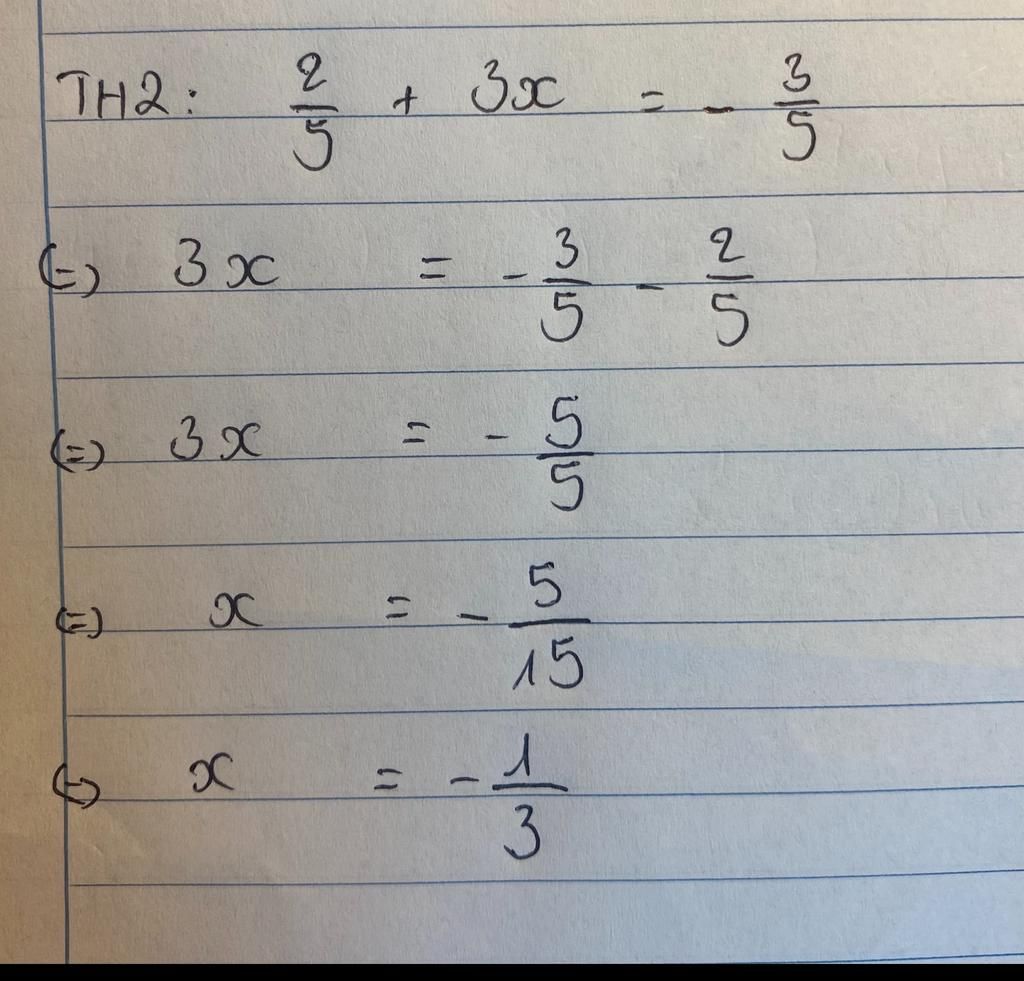 TH2: 2/5 + 3x = - 3/5
(=) 3x = - 3/5 - 2/5
(=) 3x = - 5/5
(=) x = - 5/15
(-) x = - 1/3